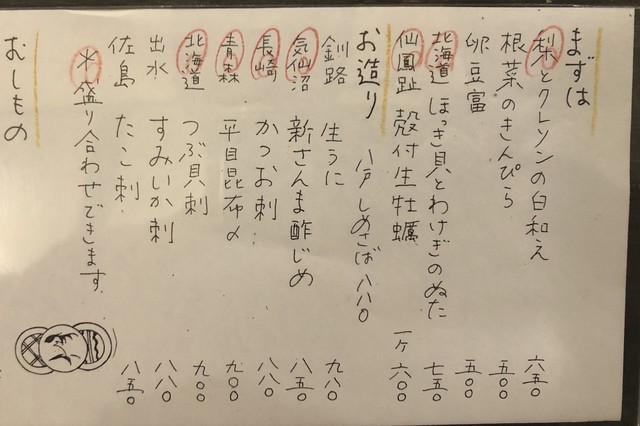 まずは
梨とクレソンの白和え 六五〇
根菜のきんぴら 五〇〇
卵豆富 五〇〇
北海道 ほっき貝とわけぎのぬた 七五〇
仙鳳趾 殻付生牡蠣 一ヶ 六〇〇
お造り 八戸しめさば 八八〇
釧路 生うに 九八〇
気仙沼 新さんま酢じめ 八五〇
長崎 かつお刺 八八〇
青森 平目昆布〆 九〇〇
北海道 つぶ貝刺 九〇〇
出水 すみいか刺 八八〇
佐島 たこ刺 八五〇
※盛り合わせできます
おしもの